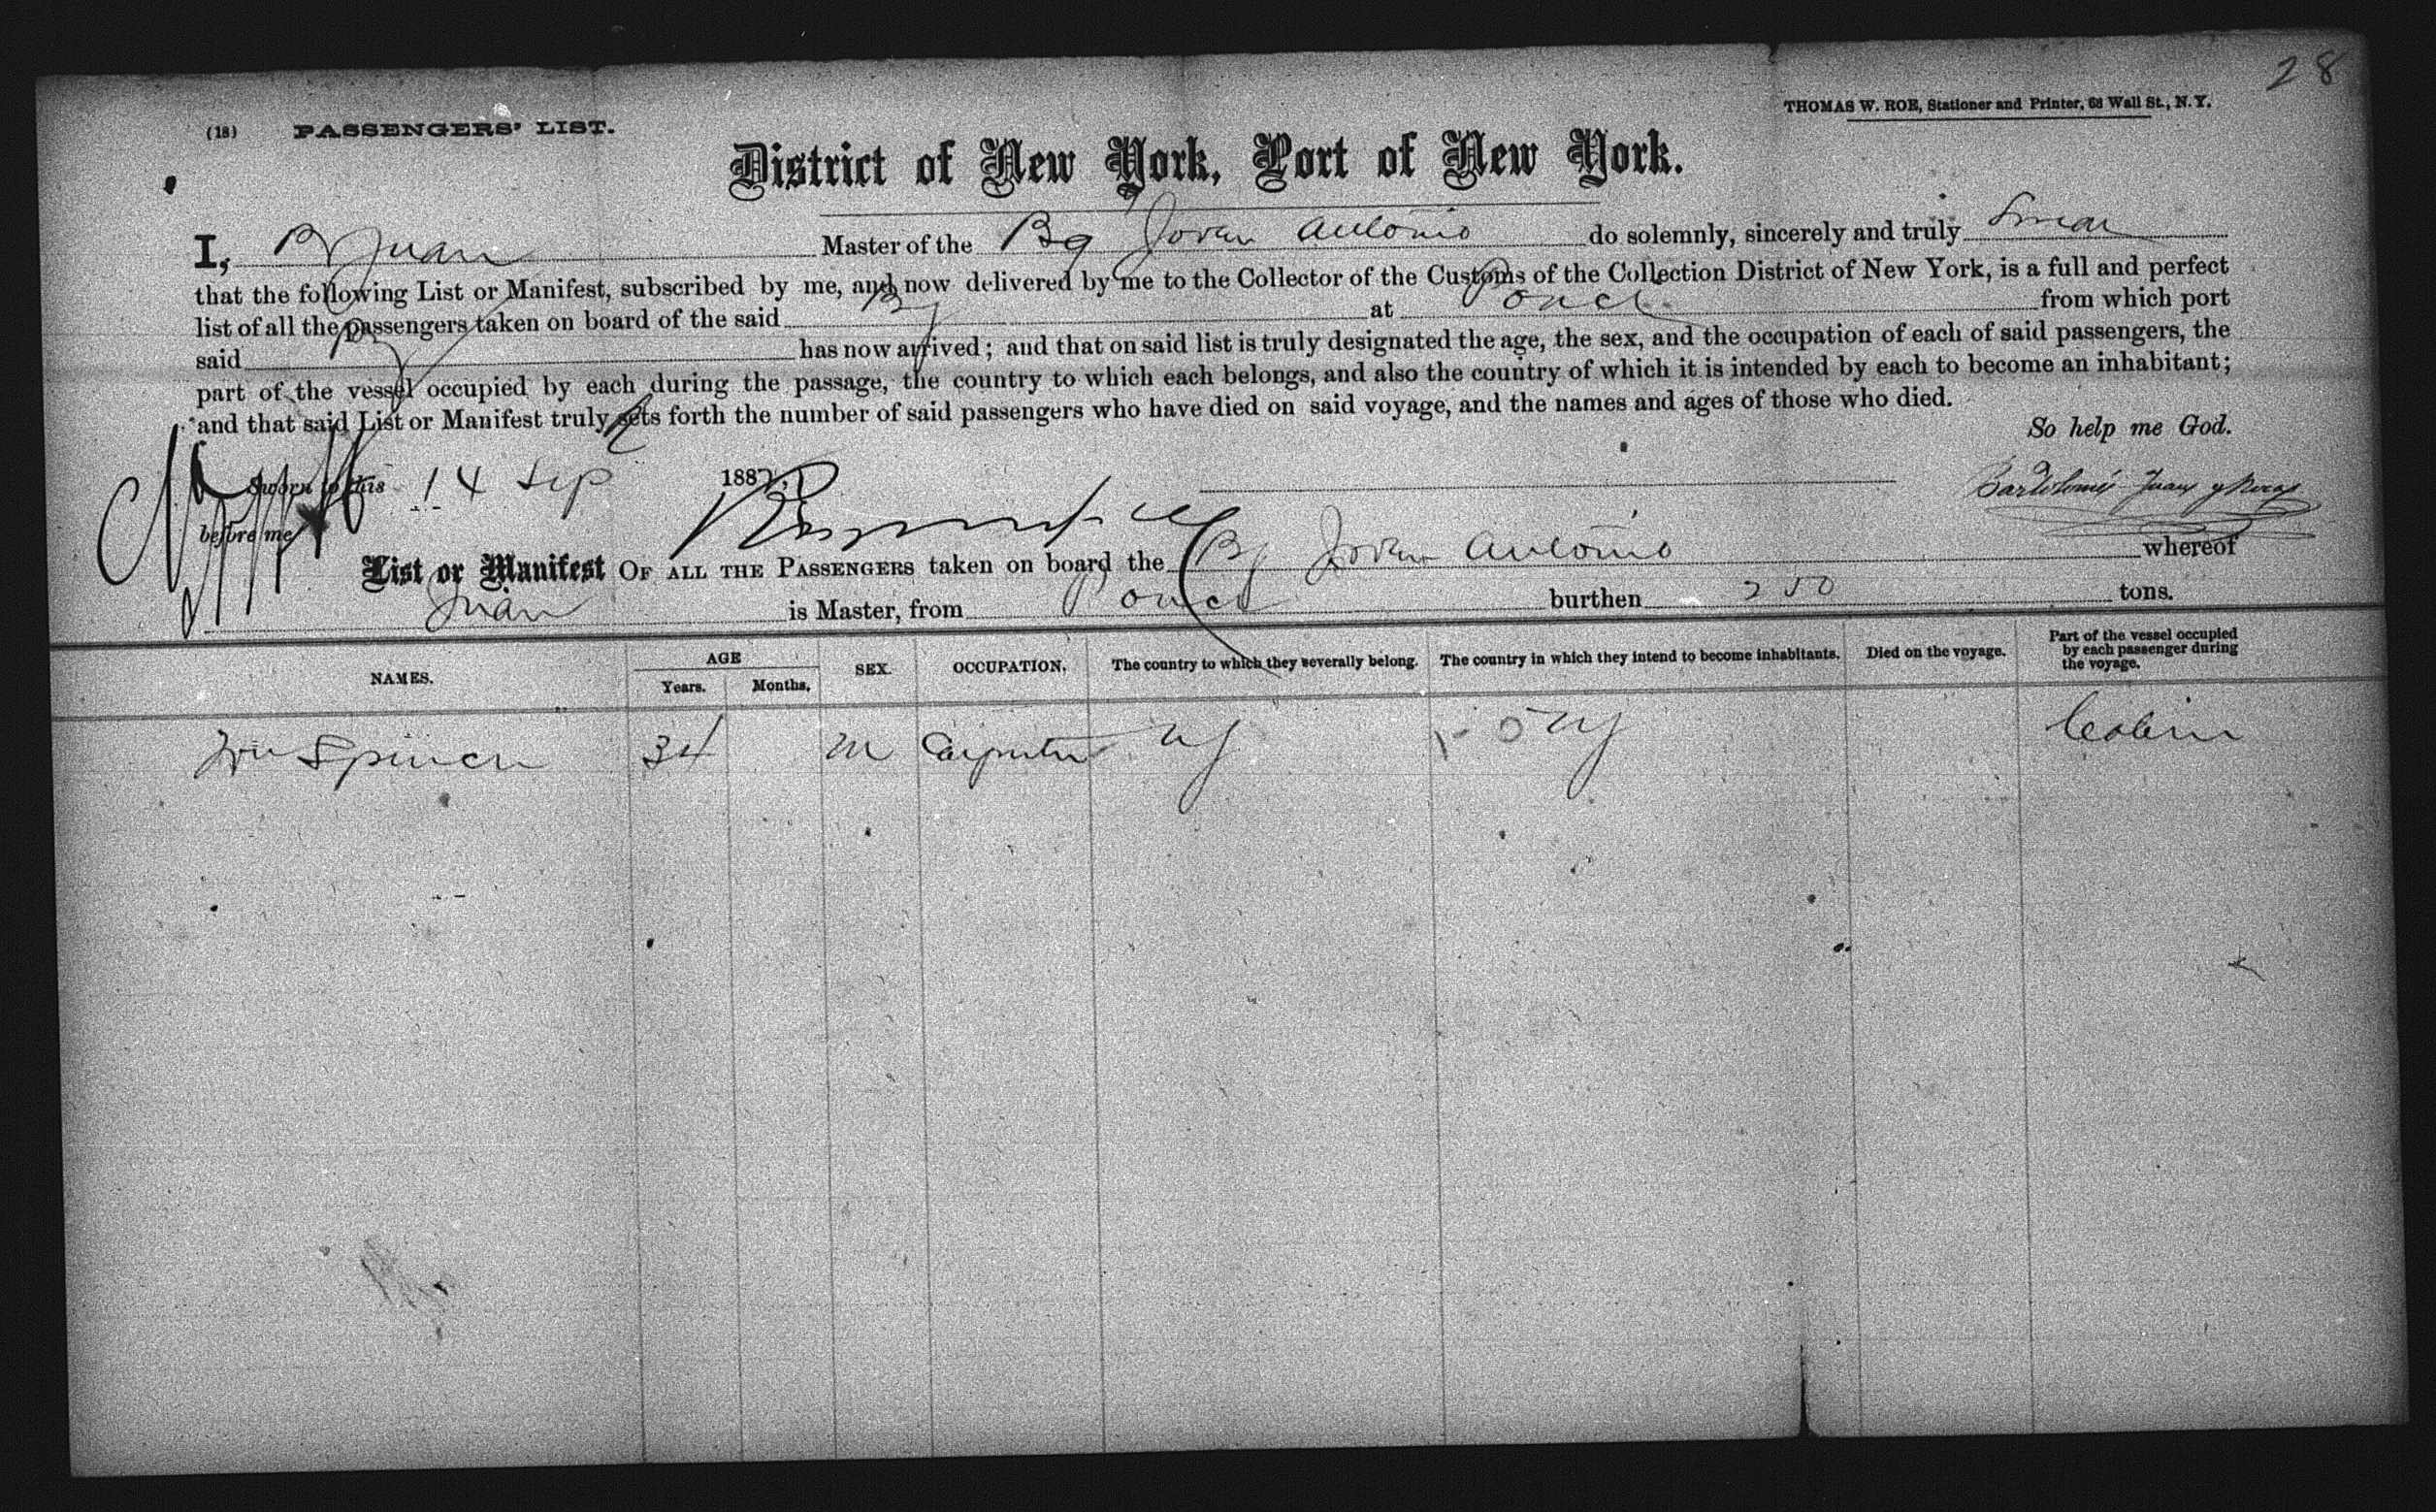 28
THOMAS W. ROE, Stationer and Printer, 68 Wall St., N. Y.
(18) PASSENGERS' LIST.
District of New York, Port of New York.
I, B Juan Master of the Bg Joven Antonio do solemnly, sincerely and truly Swear
that the following List or Manifest, subscribed by me, and now delivered by me to the Collector of the Customs of the Collection District of New York, is a full and perfect
list of all the passengers taken on board of the said Bg at Ponce from which port
said Bg has now arrived; and that on said list is truly designated the age, the sex, and the occupation of each of said passengers, the
part of the vessel occupied by each during the passage, the country to which each belongs, and also the country of which it is intended by each to become an inhabitant;
and that said List or Manifest truly sets forth the number of said passengers who have died on said voyage, and the names and ages of those who died.
So help me God.
Sworn to this 14 Sep 1887,
Bartolomé Juan y
before me
List or Manifest OF ALL THE PASSENGERS taken on board the Bg Joven Antonio whereof
Juan is Master, from Ponce burthen 250 tons.
NAMES. AGE Years. Months. SEX. OCCUPATION. The country to which they severally belong. The country in which they intend to become inhabitants. Died on the voyage. Part of the vessel occupied by each passenger during the voyage.
Wm Spencer 34 M Carpenter NY NY Cabin